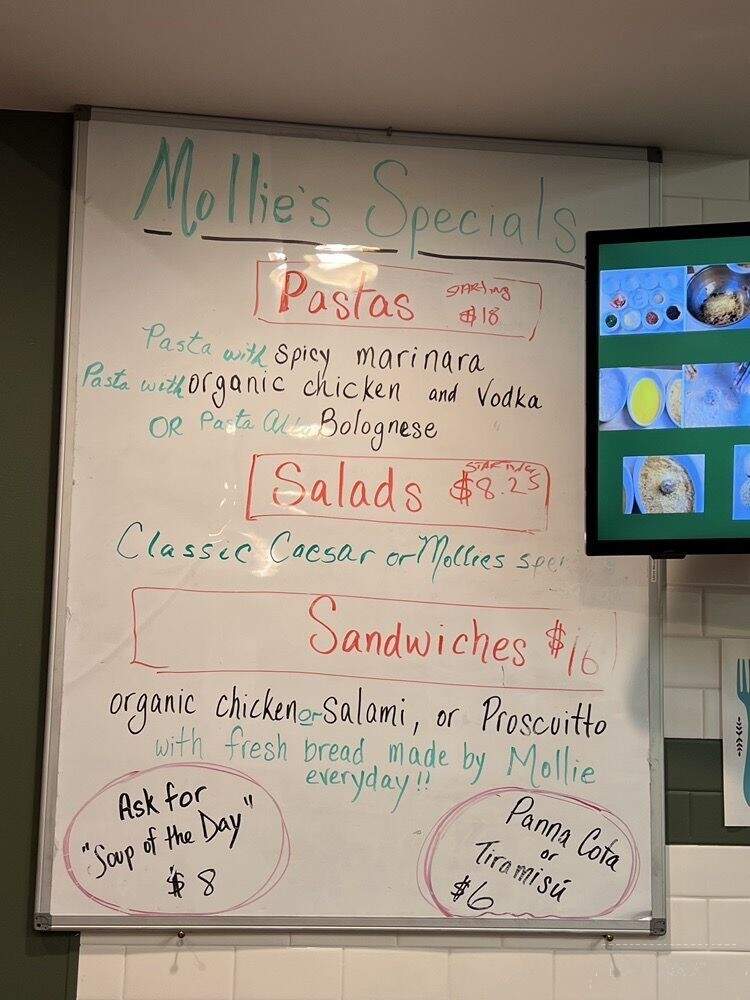 Mollie's Specials
Pastas STARTING $18
Pasta with spicy marinara
Pasta with organic chicken and Vodka
OR Pasta Alla Bolognese
Salads STARTING $8.25
Classic Caesar or Mollies
Sandwiches $16
organic chicken or Salami, or Proscuitto
with fresh bread made by Mollie
everyday!!
Ask for
"Soup of the Day"
$8
Panna Cota
or
Tiramisú
$6